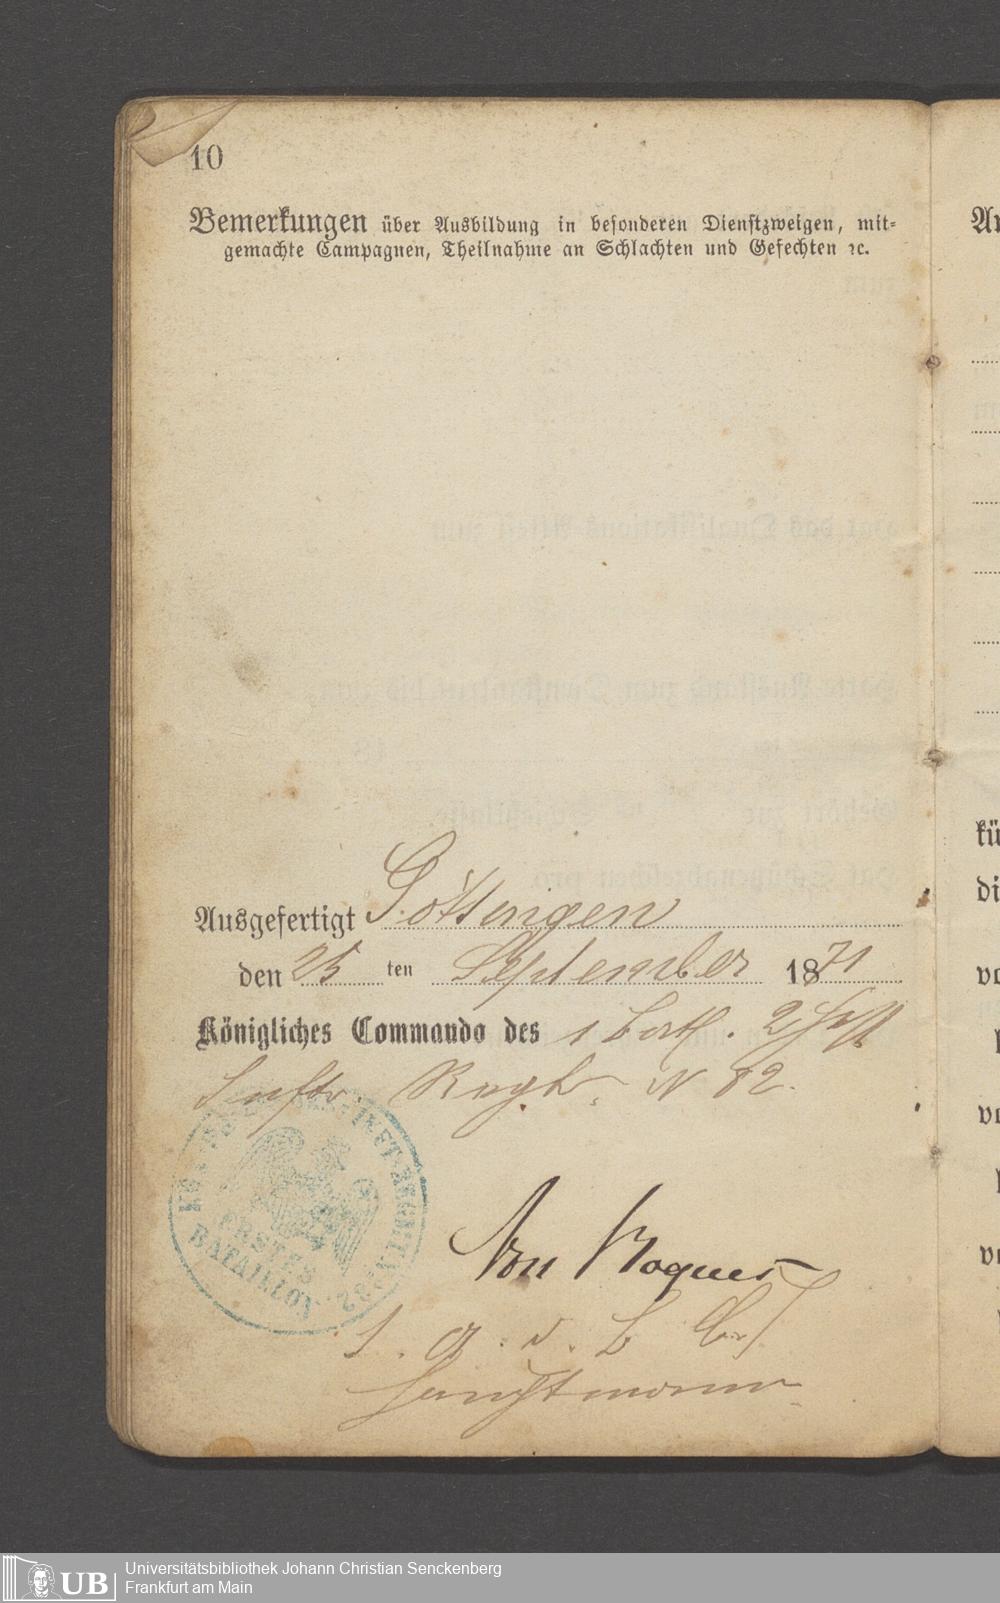 10
Bemerkungen über Ausbildung in besonderen Dienstzweigen, mit-
gemachte Campagnen, Theilnahme an Schlachten und Gefechten ꝛc.
Ausgefertigt Göttingen
den 25 ten September 1871
Königliches Commando des 1 Batl. 2 Heß
Inftr. Regts. N 82.
INFT. REGMT. No. 82.
ERSTES
BATAILLON
Von
Hauptmann
Universitätsbibliothek Johann Christian Senckenberg
Frankfurt am Main
UB